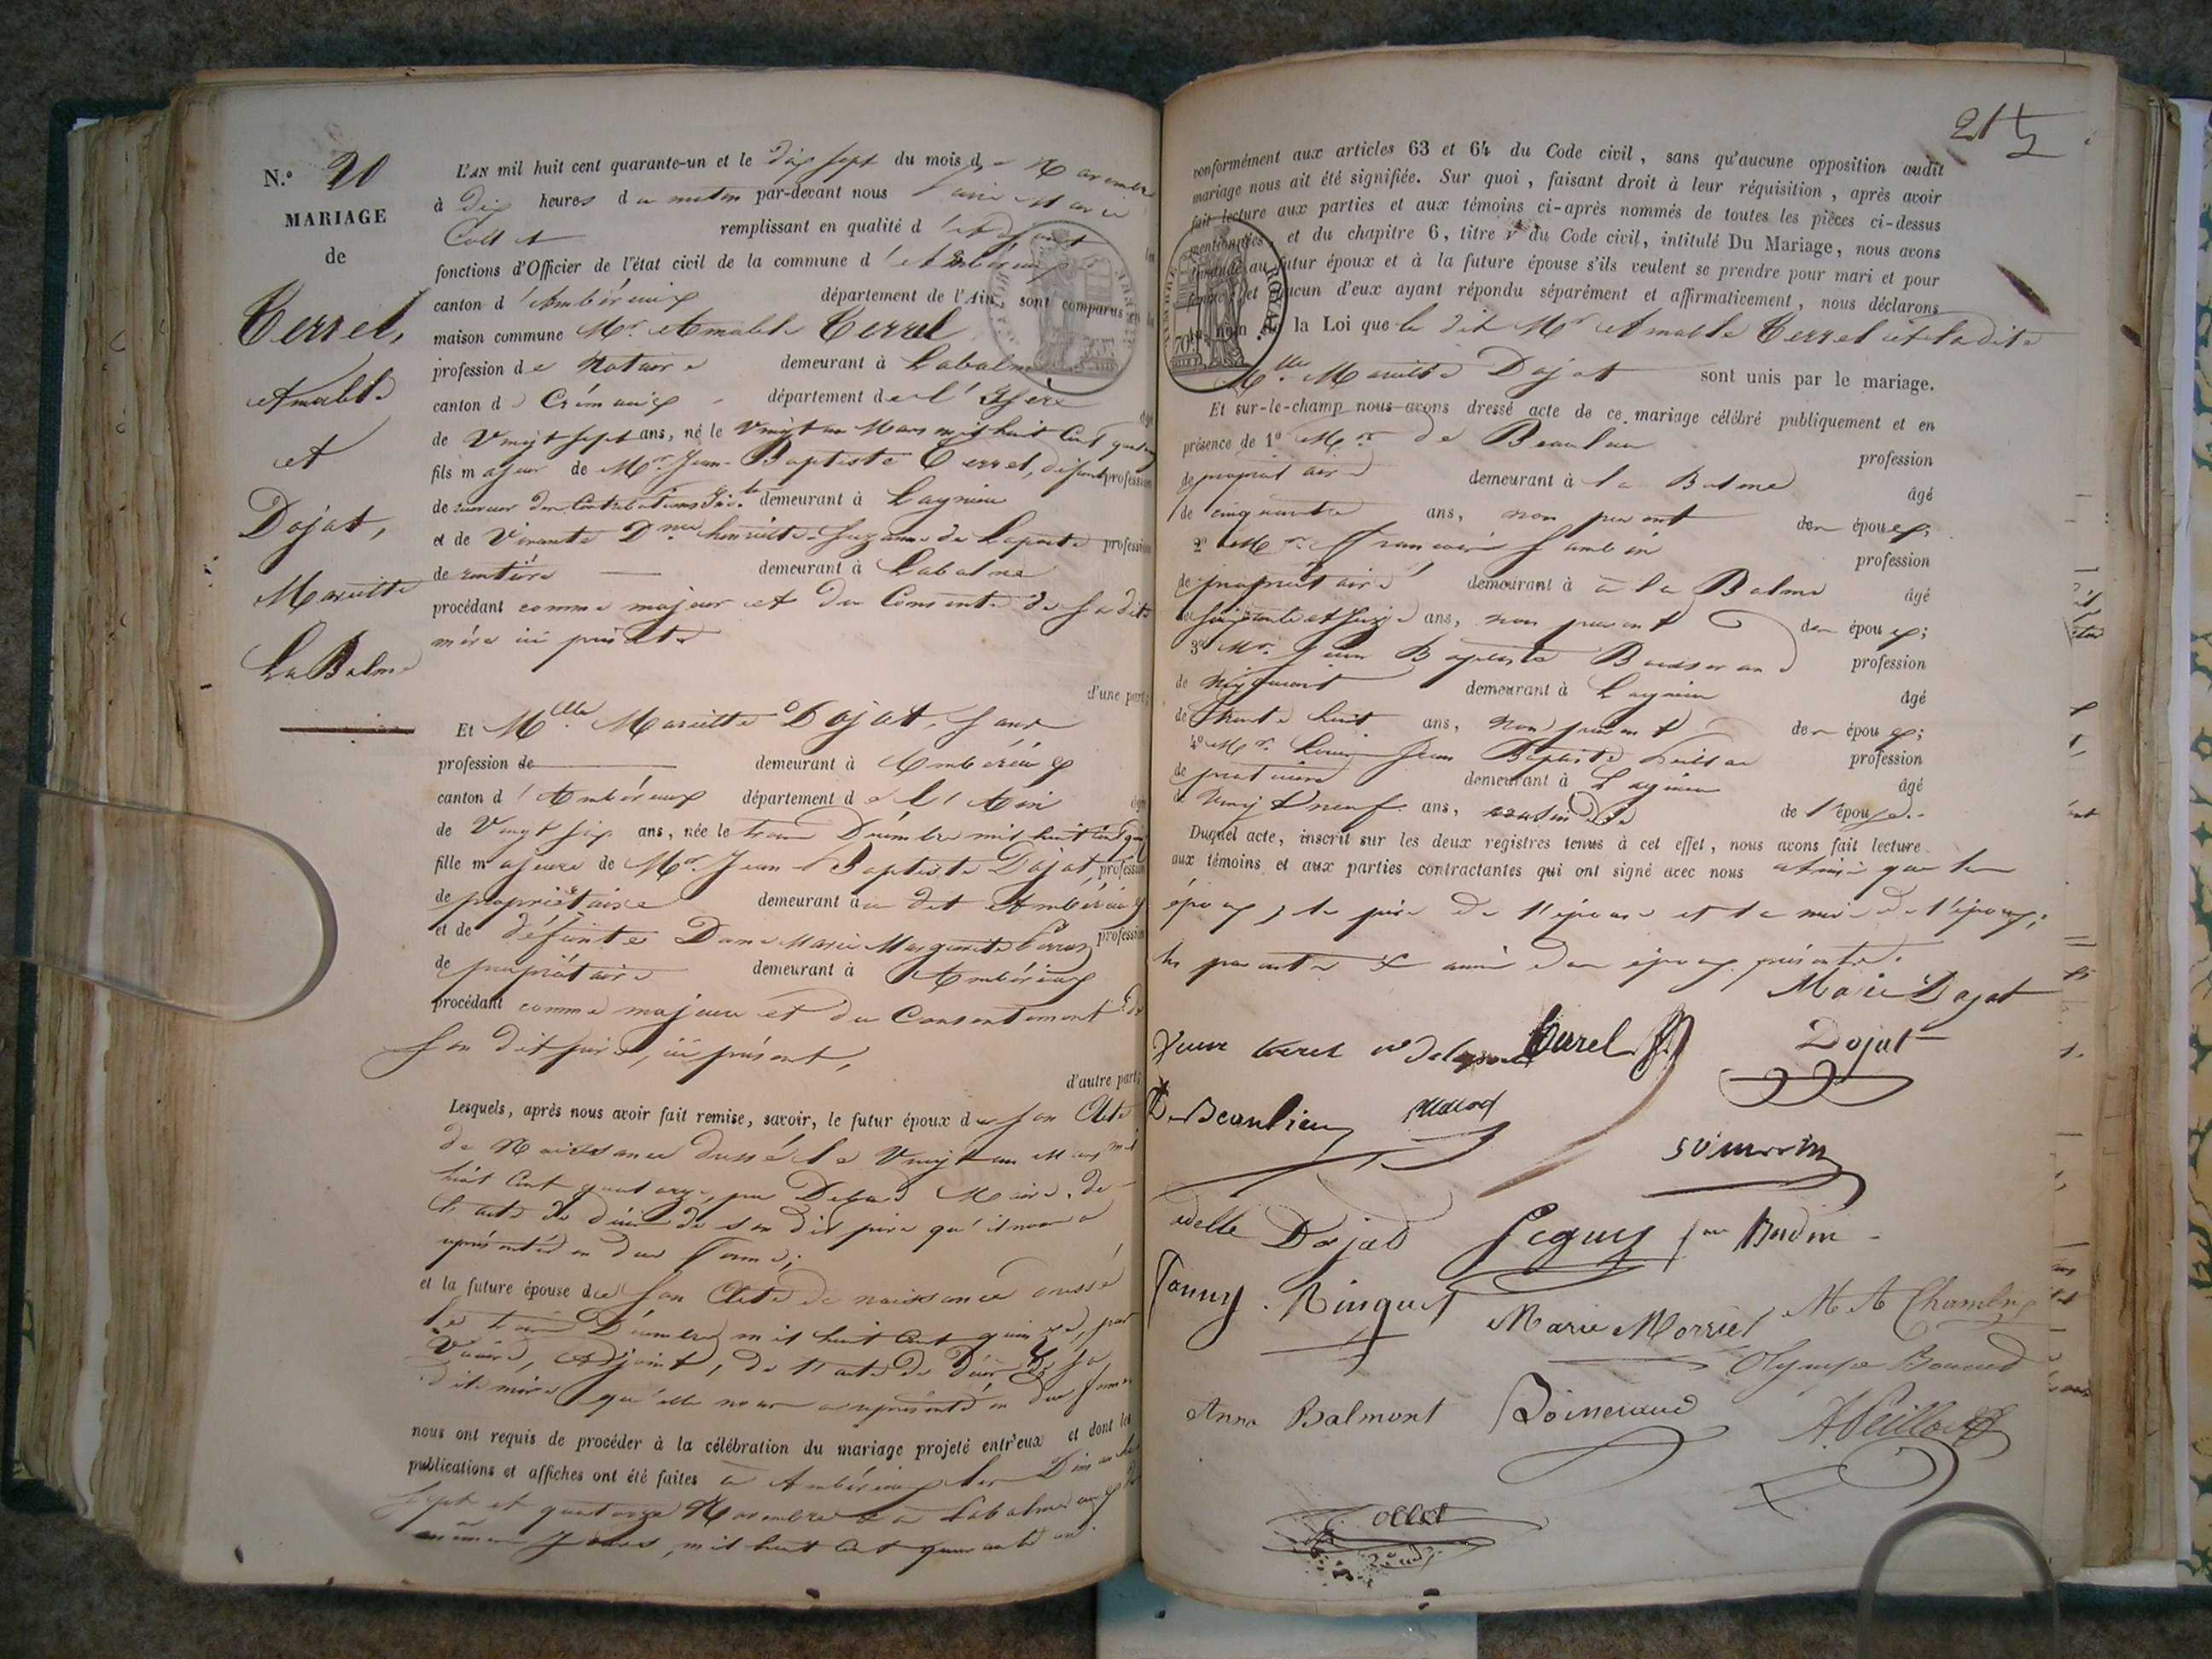 N.o 20
MARIAGE
de
Terrel,
Amable
et
Dojat,
Mariette
La Balme
L'AN mil huit cent quarante-un et le dix sept du mois de Novembre
à Dix heures du matin par-devant nous Marie
Collet remplissant en qualité d'adjoint les
fonctions d'Officier de l'état civil de la commune d'Ambérieux
canton d'Ambérieux département de l'Ain, sont comparus en la
maison commune Mr. Amable Terrel
profession de Notaire demeurant à Labalme
canton de Crémieux département de l'Isère âgé
de Vingt sept ans, né le Vingt un Mars mil huit Cent quatorze
fils majeur de Mr. Jean-Baptiste Terrel, défunt profession
de receveur des Contributions Ind.tes demeurant à Lagnieu
et de Vivante Dme henriette Suzanne de Laporte profession
de rentière demeurant à Labalme
procédant comme majeur et du Consente. de sa dite
mère ici présente
d'une part;
Et Mlle. Mariette Dojat, sans
profession de demeurant à Ambérieux
canton d'Ambérieux département de l'Ain âgée
de Vingt six ans, née le trois Décembre mil huit Cent
fille majeure de Mr. Jean-Baptiste Dojat, profession
de propriétaire demeurant à au dit Ambérieux
et de défunte Dame Marie Marguerite profession
de propriétaire demeurant à Ambérieux
procédant comme majeure et du Consentement de
son dit père, ici présent,
d'autre part;
Lesquels, après nous avoir fait remise, savoir, le futur époux de son Acte
de Naissance dressé le Vingt un Mars mil
huit Cent quatorze, par Maire, de
l'acte de décès de son dit père qu'il nous a
représenté en due forme;
et la future épouse de son Acte de naissance dressé
le trois Décembre mil huit Cent quinze, par
adjoint, de l'acte de décès de sa
dite mère qu'elle nous a représenté en due forme
nous ont requis de procéder à la célébration du mariage projeté entr'eux et dont les
publications et affiches ont été faites à Ambérieux les Dimanches
sept et quatorze Novembre et à Labalme aux
mêmes jours, mil huit Cent quarante un.
215
conformément aux articles 63 et 64 du Code civil, sans qu'aucune opposition audit
mariage nous ait été signifiée. Sur quoi, faisant droit à leur réquisition, après avoir
fait lecture aux parties et aux témoins ci-après nommés de toutes les pièces ci-dessus
mentionnées, et du chapitre 6, titre v du Code civil, intitulé Du Mariage, nous avons
demandé au futur époux et à la future épouse s'ils veulent se prendre pour mari et pour
femme; et chacun d'eux ayant répondu séparément et affirmativement, nous déclarons
au nom de la Loi que le dit Mr Amable Terrel et la dite
Mlle. Mariette Dojat sont unis par le mariage.
Et sur-le-champ nous avons dressé acte de ce mariage célébré publiquement et en
présence de 1o Mr. de Beaulieu profession
de propriétaire demeurant à la Balme âgé
de cinquante ans, non parent des époux;
2o Mr. François profession
de propriétaire demeurant à à la Balme âgé
de soixante et seize ans, non parent des époux;
3o Mr. Jean Baptiste profession
de Négociant demeurant à Lagnieu âgé
de trente huit ans, non parent des époux;
4o Mr. Louis Jean Baptiste profession
de demeurant à Lagnieu âgé
de Vingt neuf ans, cousin de de l'épouse.
Duquel acte, inscrit sur les deux registres tenus à cet effet, nous avons fait lecture
aux témoins et aux parties contractantes qui ont signé avec nous ainsi que les
époux, le père de l'épouse et la mère de l'époux;
les parents & amis des époux présents.
Marie Dojat
Veuve terrel née delaporte Terrel Dojat
De Beaulieu
adelle Dojat Seguy Bodin
Fanny Ringuet Marie Morriel M A Chambre
Olympe
Anna Balmont A. Peilloud
Collet
TIMBRE ROYAL